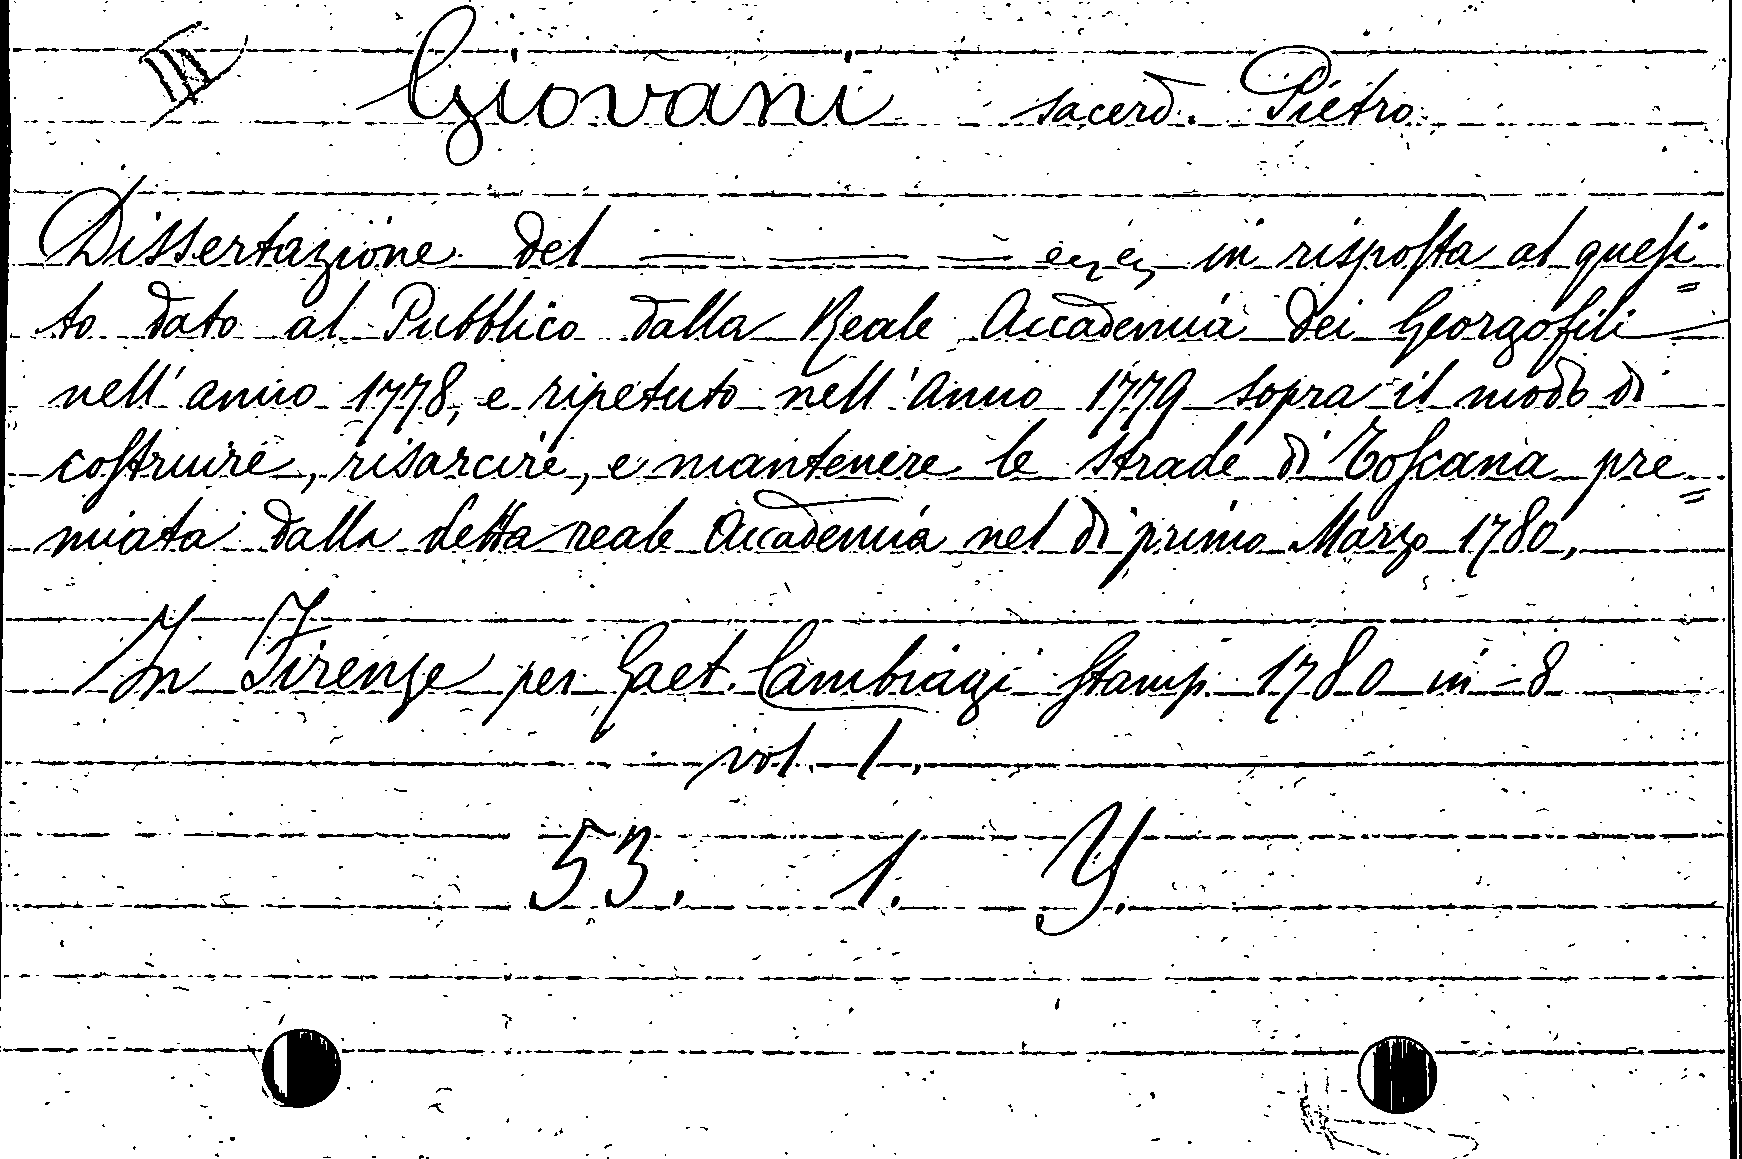 Giovani sacerd. Pietro
Dissertazione del — — — ec, ec, in risposta al quesi=
to dato al Pubblico dalla Reale Accademia dei Georgofili
nell' anno 1778, e ripetuto nell' Anno 1779 sopra il modo di
costruire, risarcire, e mantenere le strade di Toscana pre=
miata dalla detta reale Accademia nel dì primo Marzo 1780,
In Firenze per Gaet. Cambiagi Stamp. 1780 in -8
vol. 1,
53. 1. Y.